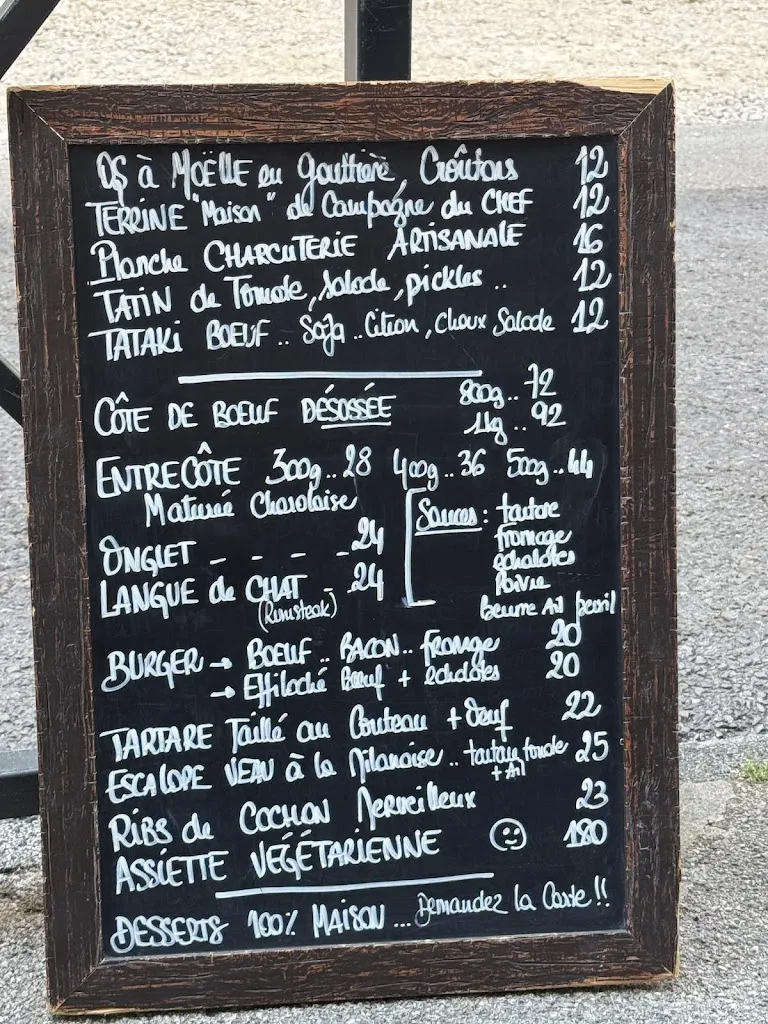 OS à MOËLLE en gouttière, Croûtons 12
TERRINE "Maison" de Campagne du CHEF 12
Planche CHARCUTERIE ARTISANALE 16
TATIN de Tomate, salade, pickles .. 12
TATAKI BOEUF .. Soja .. Citron, Choux Salade 12
CÔTE DE BOEUF DÉSOSSÉE 800g .. 72
1kg .. 92
ENTRECÔTE 300g .. 28 400g .. 36 500g .. 44
Maturée Charolaise
Sauces : tartare
fromage
échalotes
Poivre
beurre Ail persil
ONGLET - - - - 24
LANGUE de CHAT - 24
(Rumsteak)
BURGER → BOEUF .. BACON .. fromage 20
→ Effiloché Bœuf + échalotes 20
TARTARE Taillé au Couteau + Oeuf 22
ESCALOPE VEAU à la Milanaise .. 25
+ Ail
RIBS de COCHON Merveilleux 23
ASSIETTE VÉGÉTARIENNE 180
DESSERTS 100% MAISON ... Demandez la Carte !!